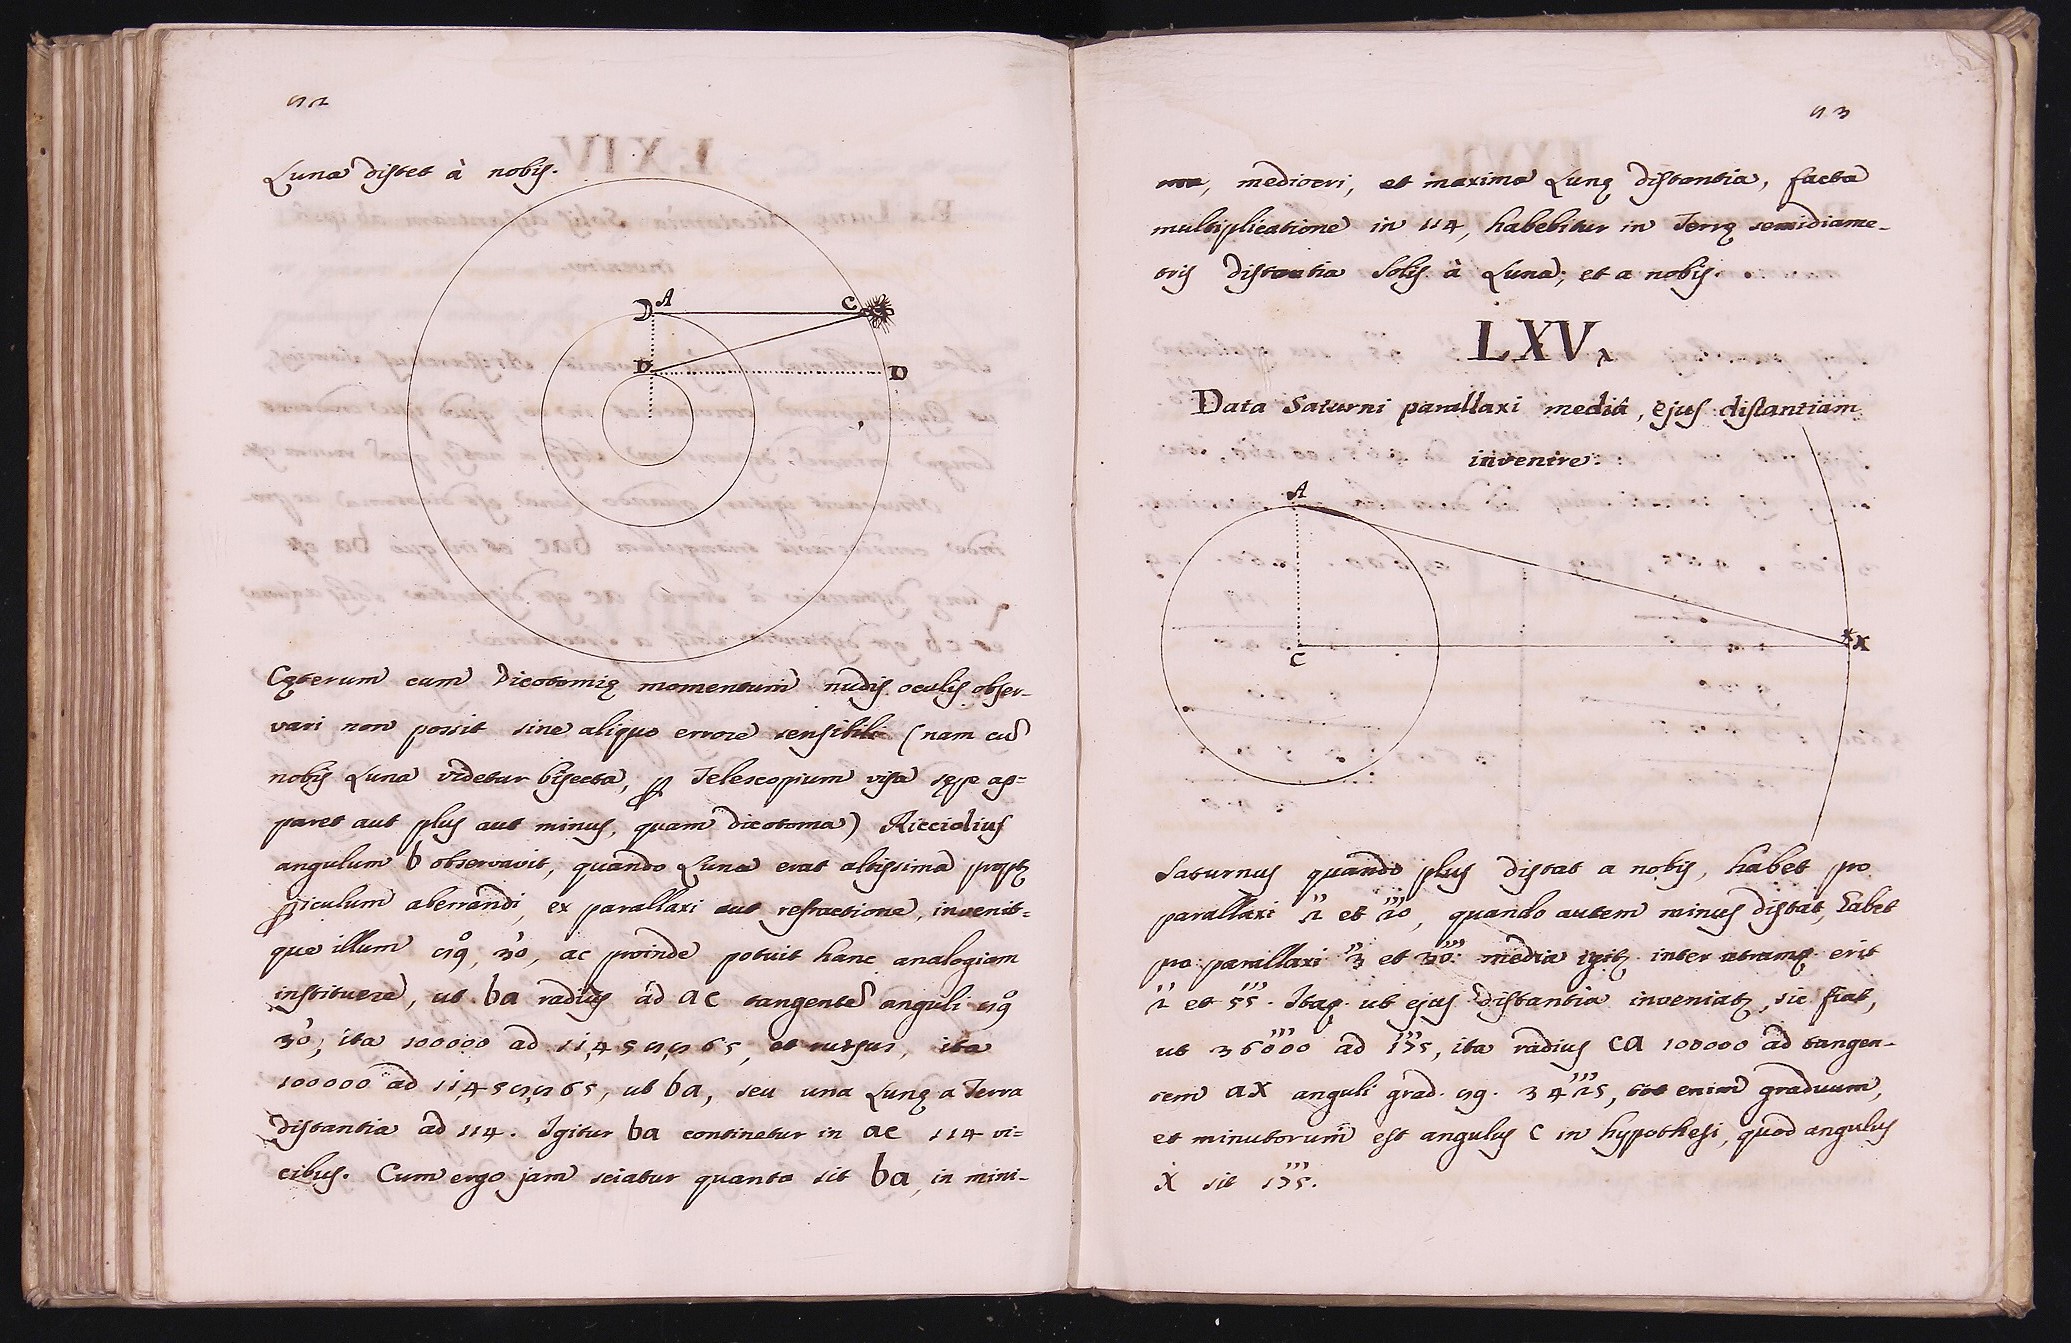 92
Luna distet à nobis.
A
C
B
D
Cęterum cum Dicotomię momentum nudis oculis obser-
vari non possit sine aliquo errore sensibili (nam cũ
nobis Luna videtur bisecta, ꝑ Telescopium visa sępe ap=
paret aut plus aut minus, quam dicotoma) Ricciolius
angulum b observavit, quando Luna erat altissima propt
ꝑiculum aberrandi, ex parallaxi aut refractione, invenit=
que illum 89°, 30', ac proinde potuit hanc analogiam
instituere, ut ba radius ad ac tangentẽ anguli 89°
30', ita 100000 ad 11,458,865, et rursus, ita
100000 ad 11,458,865, ut ba, seu una Lunę a Terra
distantia ad 114. Igitur ba continetur in ac 114 vi=
cibus. Cum ergo jam sciatur quanta sit ba, in mini-
93
ma, mediocri, et maxima Lunę distantia, facta
multiplicatione in 114, habebitur in Terrę semidiame-
tris distantia Solis à Luna; et a nobis.
LXV.
Data Saturni parallaxi mediâ, ejus distantiam
invenire.
A
C
X
Saturnus quando plus distat a nobis, habet pro
parallaxi 2'' et 20''', quando autem minus distat, habet
pro parallaxi 3'' et 30''' media igit inter utramq erit
2'' et 55'''. Itaq ut ejus distantia inveniat, sic fiat,
ut 36000''' ad 175''', ita radius ca 100000 ad tangen-
tem ax anguli grad. 89. 3425''', tot enim graduum,
et minutorum est angulus c in hypothesi, quod angulus
x sit 175'''.